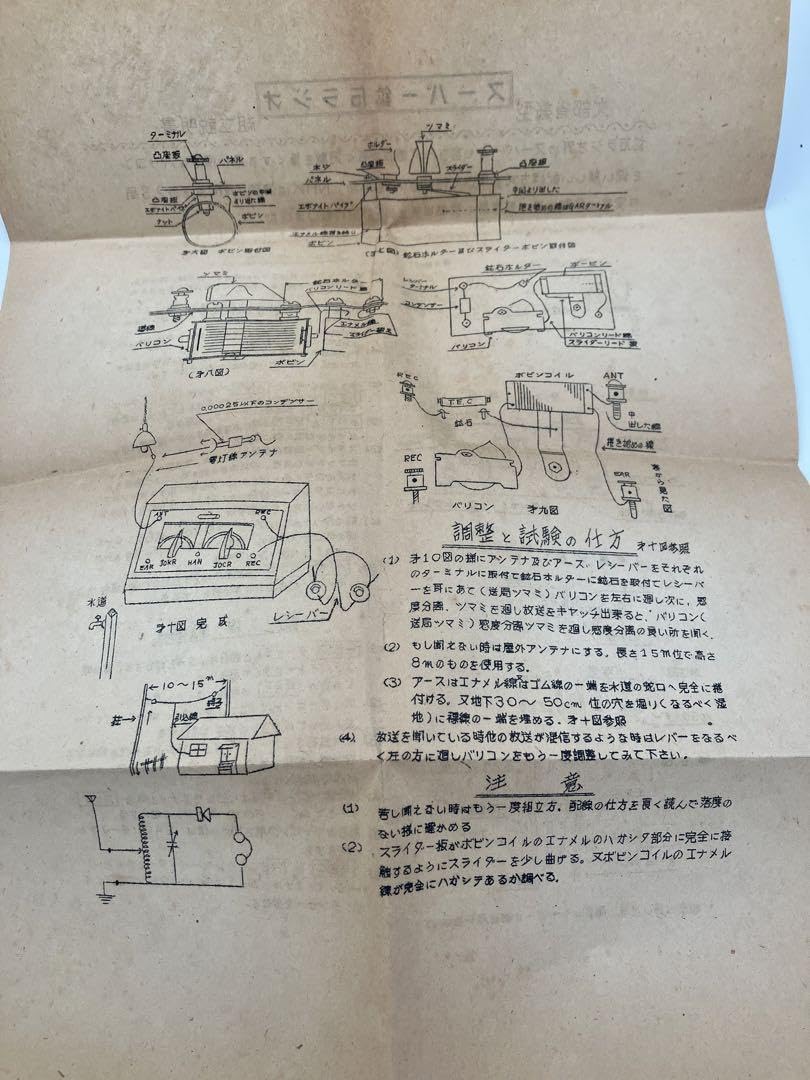 スーパー鉱石ラジオ
組立説明書
ターミナル
凸座板
パネル
凸座板
エボナイトパイプ
ナット
ボビン
ホルダー
ツマミ
凸座板
スライダー
凸座板
パネル
中間より出した
エボナイトパイプ
ボビン
(才七図) 鉱石ホルダー及びスライダーボビン取付図
才六図 ボビン取付図
ツマミ
鉱石ホルダー
バリコンリード線
エナメル線
導線
バリコン
ボビン
(才八図)
鉱石ホルダー
ボービン
レシーバー
ターミナル
コンデンサー
バリコン
バリコンリード線
スライダーリード線
REC
ボビンコイル
ANT
T.E.C
鉱石
中
出した線
捲き始めの線
REC
EAR
裏から見た図
バリコン
才九図
0.00025以下のコンデンサー
電灯線アンテナ
ANT
REC
EAR
JOKR
HAN
JOCR
REC
レシーバー
水道
才十図 完成
10〜15m
碍子
柱
引込線
調整と試験の仕方 才十図参照
(1) 才10図の様にアンテナ及びアース、レシーバーをそれぞれ
のターミナルに取付て鉱石ホルダーに鉱石を取付てレシーバ
ーを耳にあて(送局ツマミ)バリコンを左右に廻し次に、感
度分離、ツマミを廻し放送をキャッチ出来ると、バリコン(
送局ツマミ)感度分離ツマミを廻し感度分離の良い所を聞く。
(2) もし聞えない時は屋外アンテナにする。長さ15m位で高さ
8mのものを使用する。
(3) アースはエナメル線又はゴム線の一端を水道の蛇口へ完全に捲
付ける。又地下30〜50cm位の穴を堀り(なるべく湿
地)に裸線の一端を埋める。才十図参照
(4) 放送を聞いている時他の放送が混信するような時はレバーをなるべ
く左の方に廻しバリコンをもう一度調整してみて下さい。
注意
(1) 若し聞えない時はもう一度組立方、配線の仕方を良く読んで落度の
ない様に確かめる
(2) スライダー板がボビンコイルのエナメルのハガシタ部分に完全に接
触するようにスライダーを少し曲げる。又ボビンコイルのエナメル
線が完全にハガシテあるか調べる。